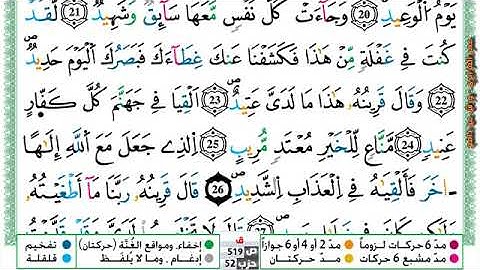 يَوْمُ الْوَعِيدِ 20 وَجَآءَتْ كُلُّ نَفْسٍ مَّعَهَا سَآئِقٌ وَشَهِيدٌ 21 لَّقَدْ
كُنتَ فِي غَفْلَةٍ مِّنْ هَٰذَا فَكَشَفْنَا عَنكَ غِطَآءَكَ فَبَصَرُكَ الْيَوْمَ حَدِيدٌ ص
22 وَقَالَ قَرِينُهُۥ هَٰذَا مَا لَدَيَّ عَتِيدٌ ص 23 اَلْقِيَا فِي جَهَنَّمَ كُلَّ كَفَّارٍ
عَنِيدٍ 24 مَّنَّاعٍ لِّلْخَيْرِ مُعْتَدٍ مُّرِيبٍ 25 اِلذِي جَعَلَ مَعَ اَللَّهِ إِلَٰهاً
ـاخَرَ فَأَلْقِيَٰهُ فِي الْعَذَابِ الشَّدِيدِ ص 26 قَالَ قَرِينُهُۥ رَبَّنَا مَآ أَطْغَيْتُهُۥ
وَلَٰكِن كَانَ فِي ضَلَٰلٍ بَعِيدٍ ص 27 قَالَ لَا تَخْتَصِمُواْ لَدَيَّ وَقَدْ قَدَّمْتُ
مدّ 6 حركات لزوماً مدّ 2 أو 4 أو 6 جوازاً إخفاء، ومواقع الغُنَّة (حركتان) تفخيم
مدّ مشبع 6 حركات مدّ حركتان إدغام، وما لا يُلفَظ قلقلة
ق
ص 519
حزب 52